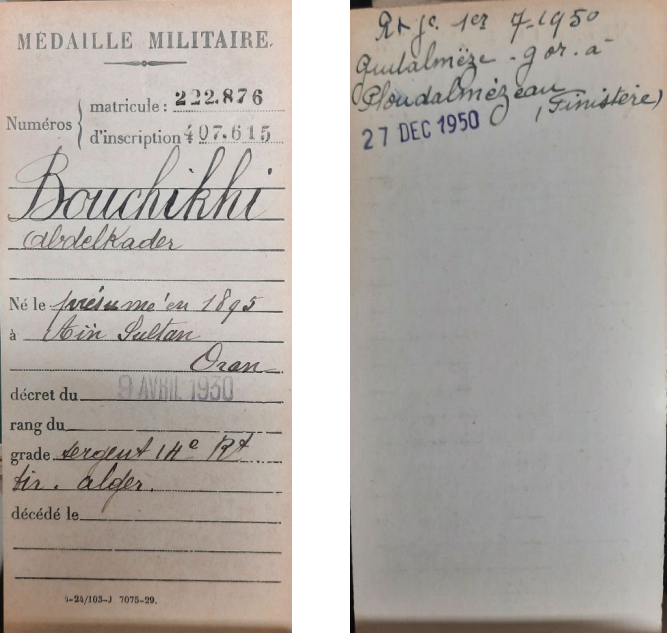 MÉDAILLE MILITAIRE.
Numéros
matricule : 222.876
d'inscription 407.615
Bouchikhi
Abdelkader
Né le présumé en 1895
à Aïn Sultan
Oran
décret du 9 AVRIL 1930
rang du
grade sergent 14e Rt
tir. alger.
décédé le
4-24/103-J 7075-29.
1er 7-1950
à
Ploudalmézeau
(Finistère)
27 DEC 1950